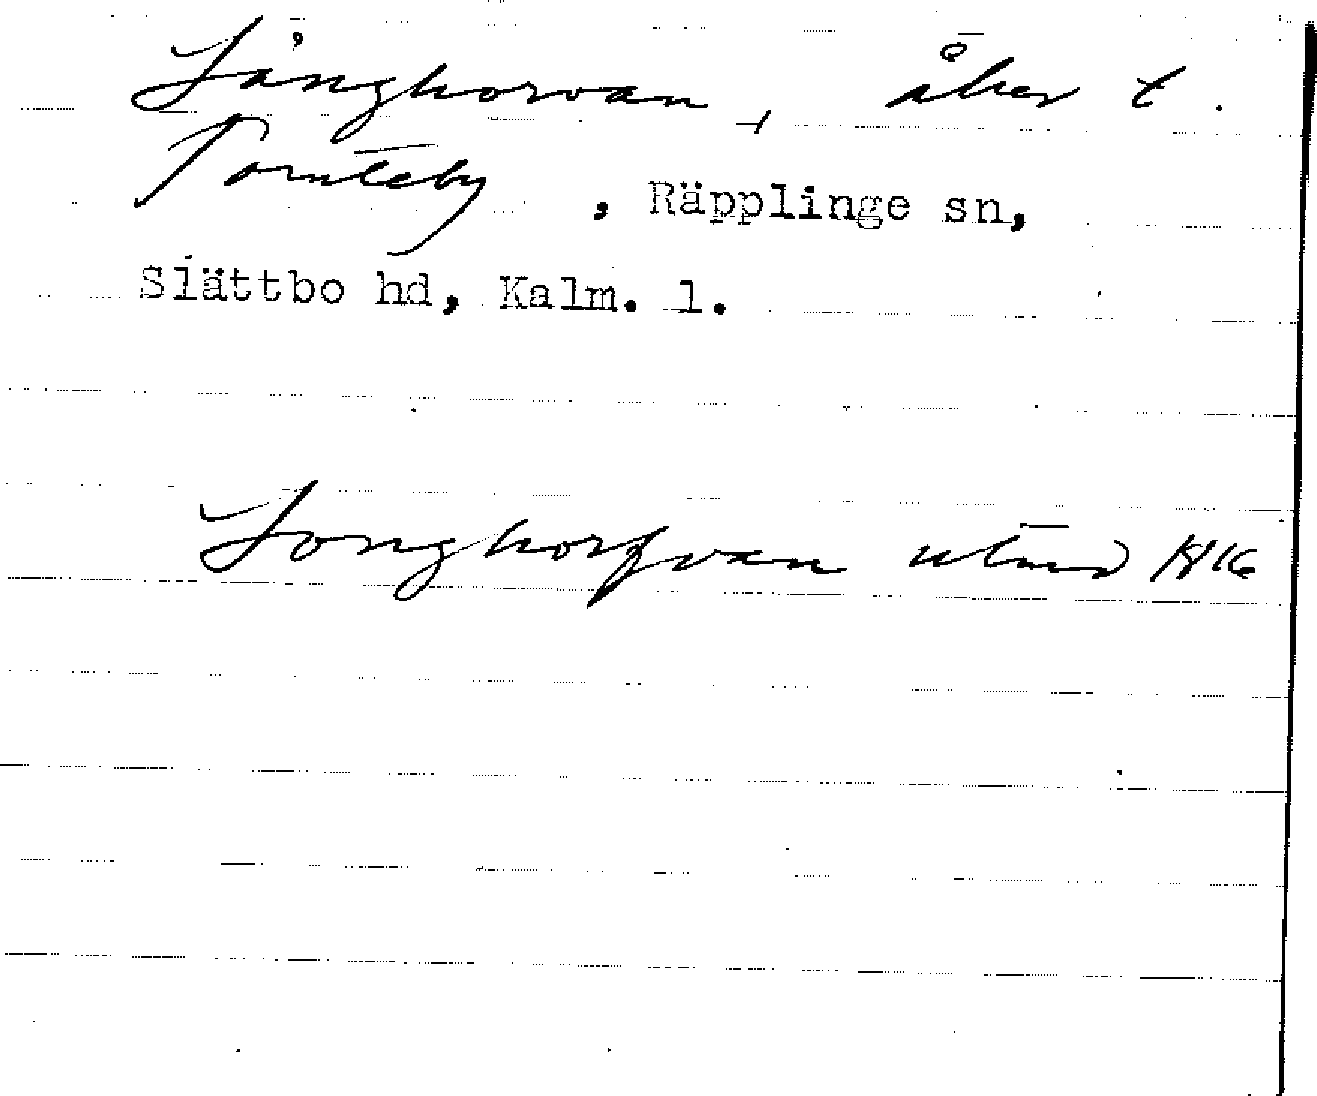 Långhorvan, åker t.
Tornteby, Räpplinge sn,
Slättbo hd, Kalm. l.
Longhorfvan utmed